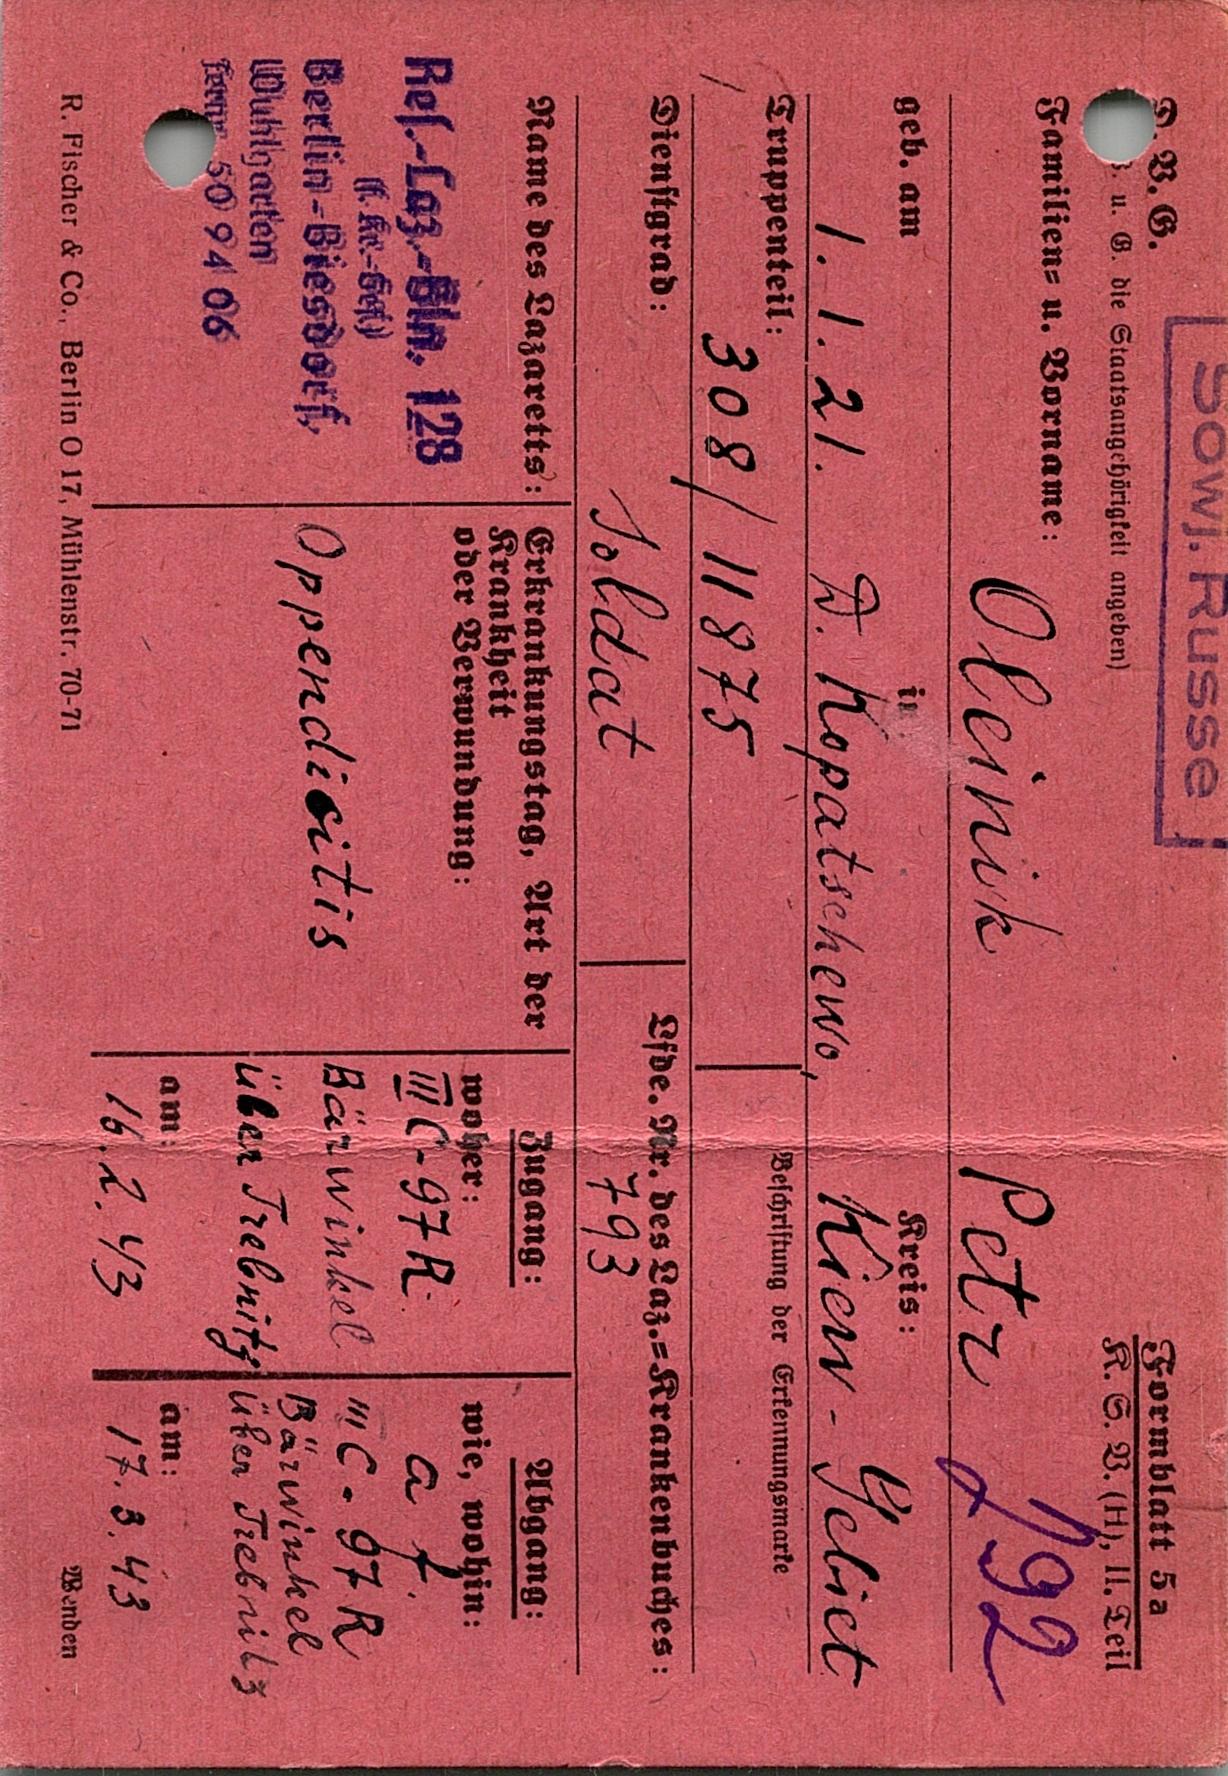 Sowj. Russe
Formblatt 5a
K. S. V. (H), II. Teil
u. G. die Staatsangehörigkeit angeben)
792
Familien= u. Vorname: Oleinik Petr
geb. am in Kreis:
1. 1. 21. D. Kopatschewo, Kiew - Gebiet
Truppenteil: Beschriftung der Erkennungsmarke
308/11875
Dienstgrad: Lfde. Nr. des Laz.=Krankenbuches:
Soldat 793
Name des Lazaretts:
Res.-Laz.-Bln. 128
(f. Kr.-Gef.)
Berlin-Biesdorf,
Wuhlgarten
50 94 06
Erkrankungstag, Art der
Krankheit
oder Verwundung:
Oppendicitis
Zugang:
woher:
III C-97 R.
Bärwinkel
über Trebnitz
am:
16. 2. 43
Abgang:
wie, wohin:
a f.
III C - 97 R
Bärwinkel
über Trebnitz
am:
17. 3. 43
R. Fischer & Co., Berlin O 17, Mühlenstr. 70-71
Wenden